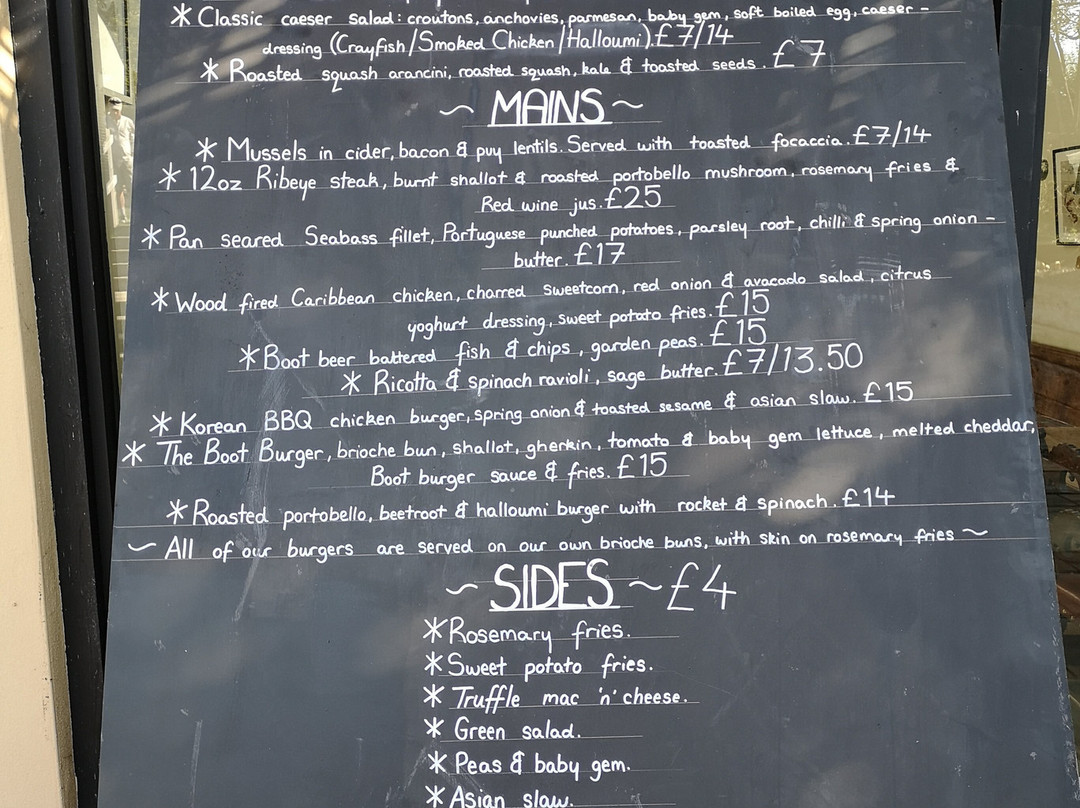 * Classic caeser salad: croutons, anchovies, parmesan, baby gem, soft boiled egg, caeser -
dressing (Crayfish/Smoked Chicken/Halloumi). £7/14
* Roasted squash arancini, roasted squash, kale & toasted seeds. £7
~ MAINS ~
* Mussels in cider, bacon & puy lentils. Served with toasted focaccia. £7/14
* 12oz Ribeye steak, burnt shallot & roasted portobello mushroom, rosemary fries &
Red wine jus. £25
* Pan seared Seabass fillet, Portuguese punched potatoes, parsley root, chilli & spring onion -
butter. £17
* Wood fired Caribbean chicken, charred sweetcorn, red onion & avacado salad, citrus
yoghurt dressing, sweet potato fries. £15
* Boot beer battered fish & chips, garden peas. £15
* Ricotta & spinach ravioli, sage butter. £7/13.50
* Korean BBQ chicken burger, spring onion & toasted sesame & asian slaw. £15
* The Boot Burger, brioche bun, shallot, gherkin, tomato & baby gem lettuce, melted cheddar,
Boot burger sauce & fries. £15
* Roasted portobello, beetroot & halloumi burger with rocket & spinach. £14
~ All of our burgers are served on our own brioche buns, with skin on rosemary fries ~
~ SIDES ~ £4
* Rosemary fries.
* Sweet potato fries.
* Truffle mac 'n' cheese.
* Green salad.
* Peas & baby gem.
* Asian slaw.